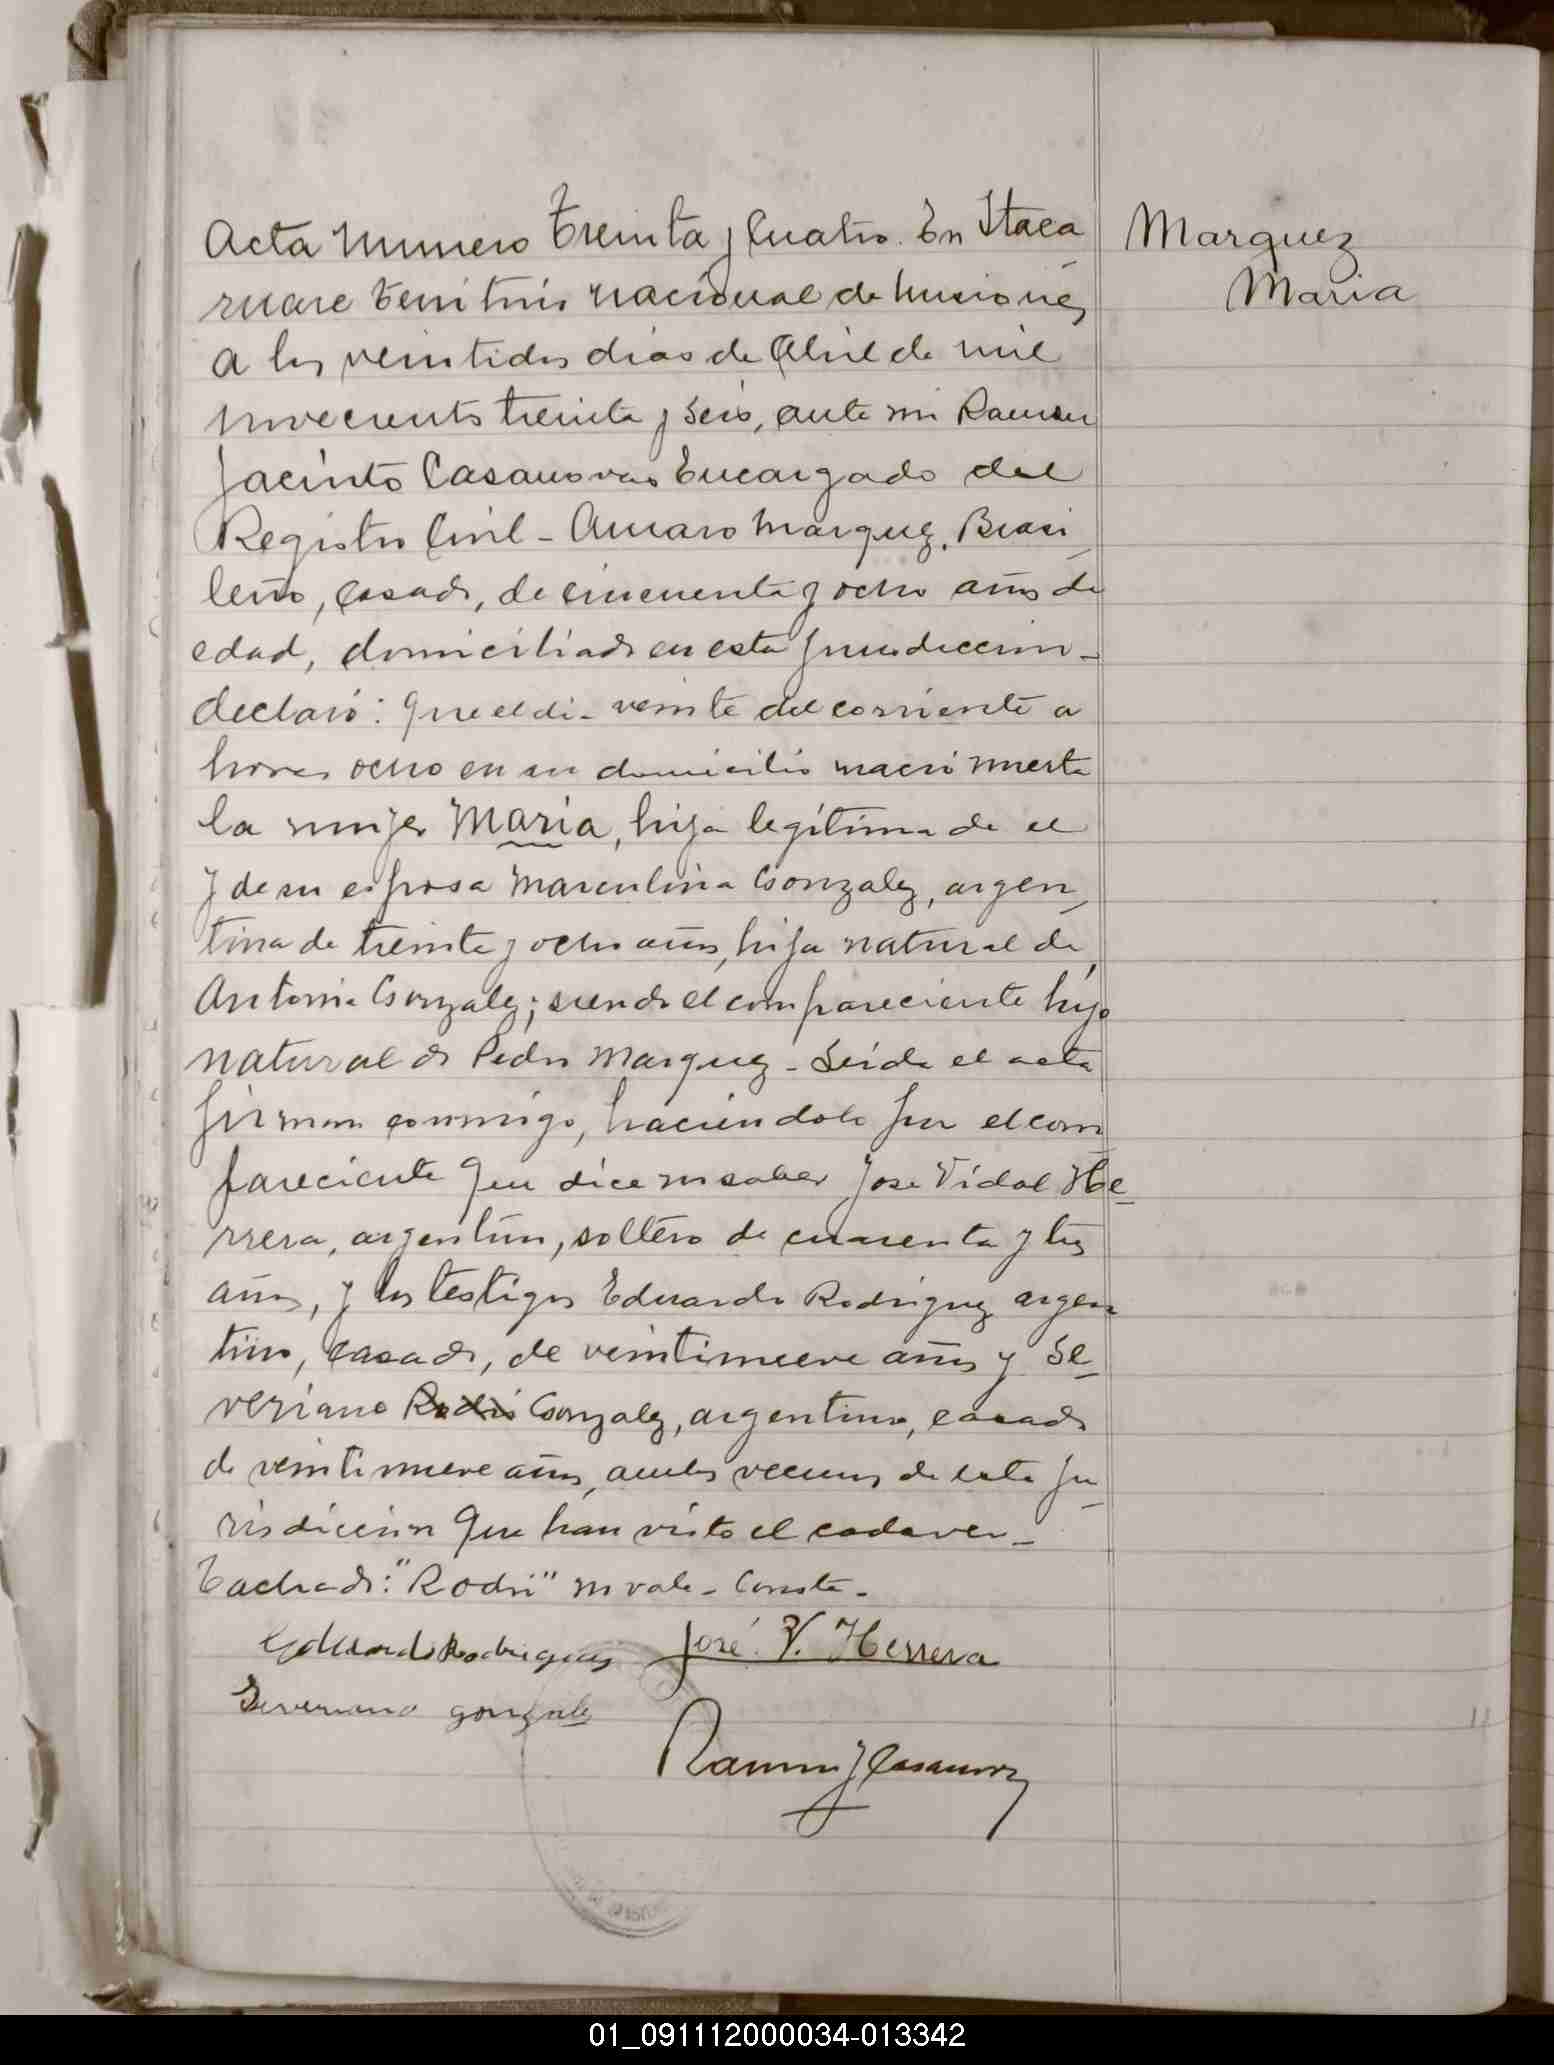 Acta Numero Treinta y Cuatro. En Itaca
Marquez
Maria
ruare territorio nacional de Misiones
a los veintidos dias de Abril de mil
novecientos treinta y seis, ante mi Ramon
Jacinto Casanovas Encargado del
Registro Civil - Amaro Marquez, Brasi_
leño, casado, de cincuenta y ocho años de
edad, domiciliado en esta jurisdiccion_
declaró: Que el dia veinte del corriente a
horas ocho en su domicilio nació muerta
la mujer Maria, hija legítima de el
y de su esposa Marculina Gonzalez, argen_
tina de treinta y ocho años, hija natural de
Antonia Gonzalez; siendo el compareciente hijo
natural de Pedro Marquez - Leida el acta
firman conmigo, haciendolo por el com
pareciente que dice no saber Jose Vidal He_
rrera, argentino, soltero de cuarenta y tres
años, y los testigos Eduardo Rodriguez argen
tino, casado, de veintinueve años y Se_
veriano Rodri Gonzalez, argentino, casado
de veintinueve años, ambos vecinos de esta ju_
risdiccion que han visto el cadaver_
Tachado: "Rodri" no vale - Conste -
Eduardo Rodriguez José V. Herrera
Severiano gonzalez
Ramon J Casanovas
01_091112000034-013342